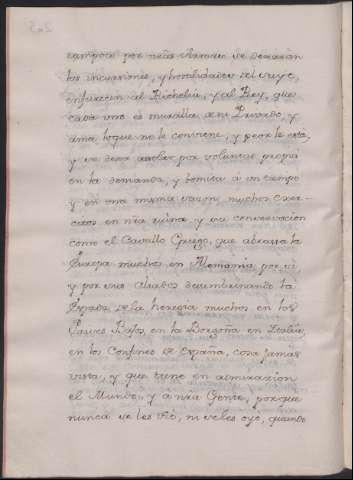 campos por nr̃a clamado se dexarán
las incursiones, y hostilidades del suyo,
enfurecen al Richelieu, y al Rey, que
cada uno es muralla de su Privado, y
ama loque no le conviene, y peor le está,
y se dexa asolar por voluntad propia
en la demanda, y vomita á un tiempo
y en una misma sazon, muchos Exer-
citos en nr̃a ruina, y su conservacion
como el Cavallo Griego, que abrasa la
Europa muchos en Alemania por sí
y por sus aliados desembainando la
Espada de la heregia muchos en los
Paises Bajos, en la Borgoña, en Italia,
en los Confines de España, cosa jamas
vista, y que tiene en admiracion
el Mundo, y a nr̃a Gente, porque
nunca se les vió, ni se les oyó, quando